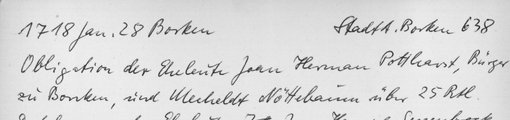 1718 Jan. 28 Borken StadtA. Borken 638
Obligation der Eheleute Joan Herman Pottharst, Bürger
zu Borcken, und Mecheldt Nöttebaum über 25 Rtl.